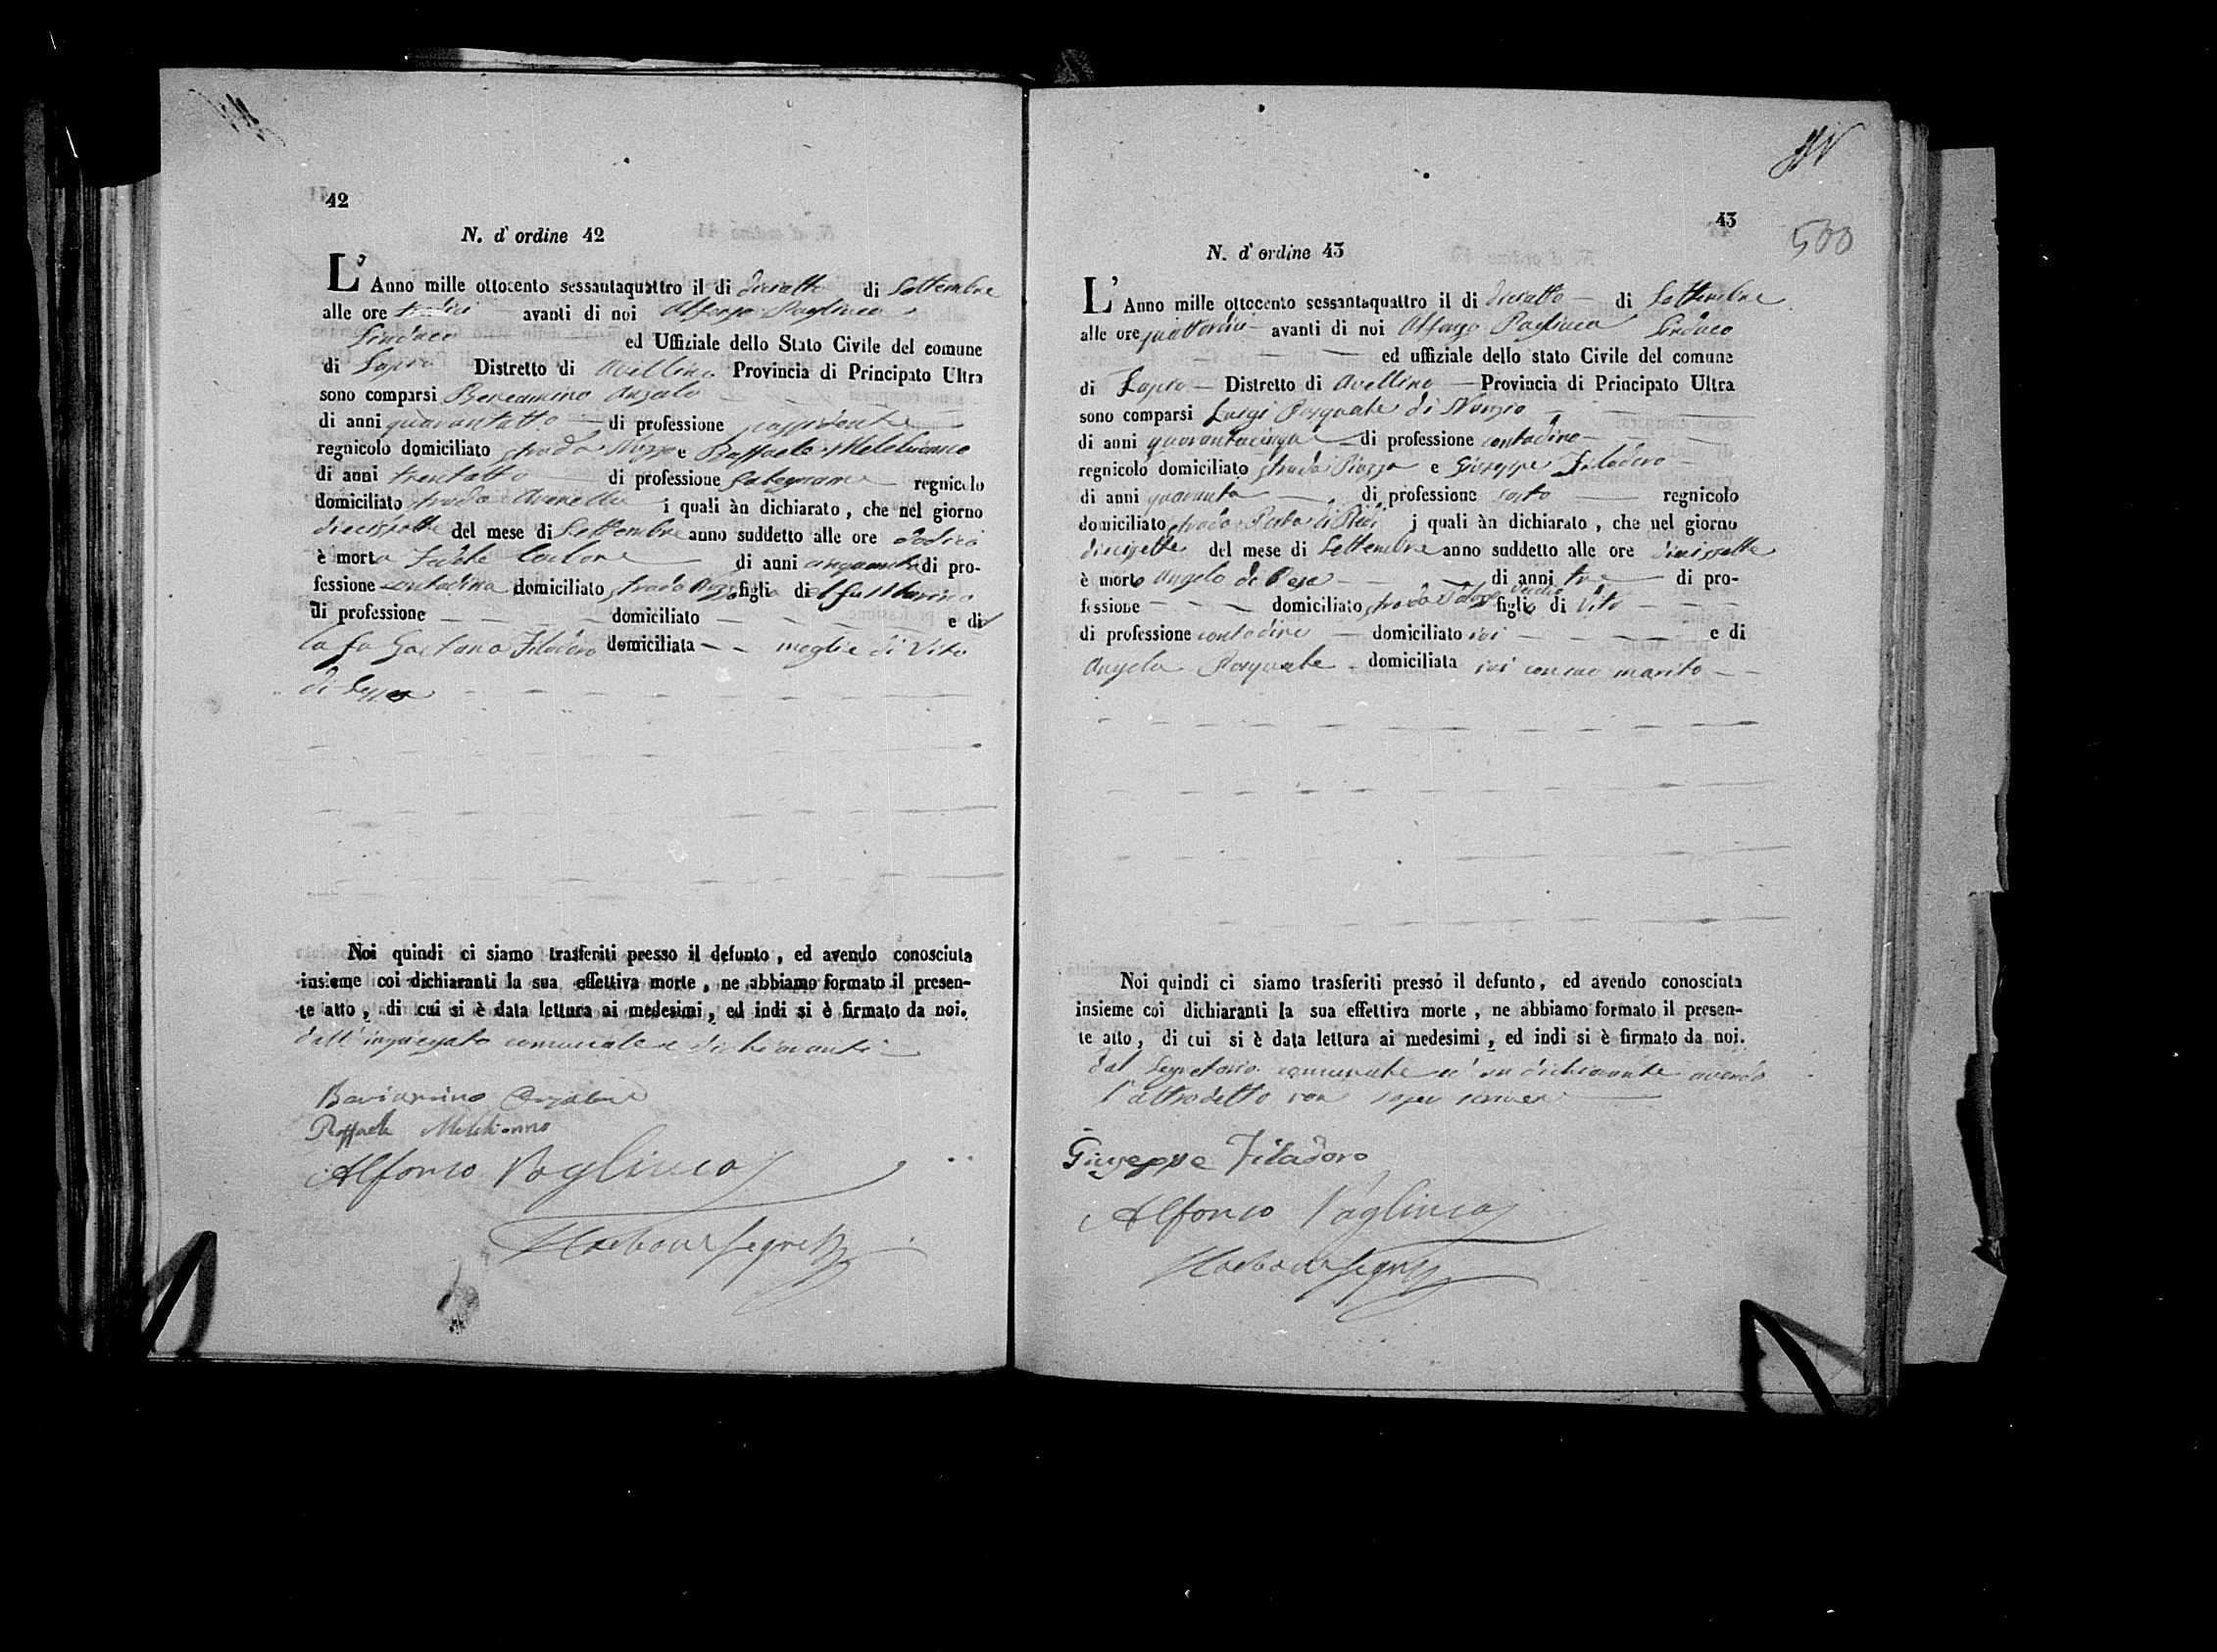 42
N. d'ordine 42
L'Anno mille ottocento sessantaquattro il di dieciotto di Settembre
alle ore tredici avanti di noi Alfonso Pagliuca
Sindaco ed Uffiziale dello Stato Civile del comune
di Lapio Distretto di Avellino Provincia di Principato Ultra
sono comparsi Beniamino Anzalone
di anni quarantotto di professione possidente
regnicolo domiciliato strada Piazza e Raffaele Melchionno
di anni trentotto di professione falegname regnicolo
domiciliato strada i quali àn dichiarato, che nel giorno
diecissette del mese di Settembre anno suddetto alle ore dodici
è morta Carbone di anni cinquanta di pro-
fessione contadina domiciliato strada figli di
di professione domiciliato e di
la fu Gaetana Filadoro domiciliata moglie di Vito
di
Noi quindi ci siamo trasferiti presso il defunto, ed avendo conosciuta
insieme coi dichiaranti la sua effettiva morte, ne abbiamo formato il presen-
te atto, di cui si è data lettura ai medesimi, ed indi si è firmato da noi.
dall'impiegato comunale e dichiaranti
Beniamino Anzalone
Raffaele Melchionno
Alfonso Pagliuca
43
500
N. d'ordine 43
L'Anno mille ottocento sessantaquattro il di dieciotto di Settembre
alle ore quattordici avanti di noi Alfonso Pagliuca Sindaco
ed uffiziale dello stato Civile del comune
di Lapio Distretto di Avellino Provincia di Principato Ultra
sono comparsi Luigi Pasquale di Nunzio
di anni quarantacinque di professione contadino
regnicolo domiciliato strada Piazza e Giuseppe Filadoro
di anni quaranta di professione sarto regnicolo
domiciliato strada Porta di j quali àn dichiarato, che nel giorno
diecissette del mese di Settembre anno suddetto alle ore diecissette
è morto Angelo de di anni tre di pro-
fessione domiciliato strada figlio di Vito
di professione contadino domiciliato ivi e di
Angela Pasquale domiciliata ivi con suo marito
Noi quindi ci siamo trasferiti presso il defunto, ed avendo conosciuta
insieme coi dichiaranti la sua effettiva morte, ne abbiamo formato il presen-
te atto, di cui si è data lettura ai medesimi, ed indi si è firmato da noi.
dal Segretario comunale ed un dichiarante avendo
l'altro detto non saper scrivere
Giuseppe Filadoro
Alfonso Pagliuca